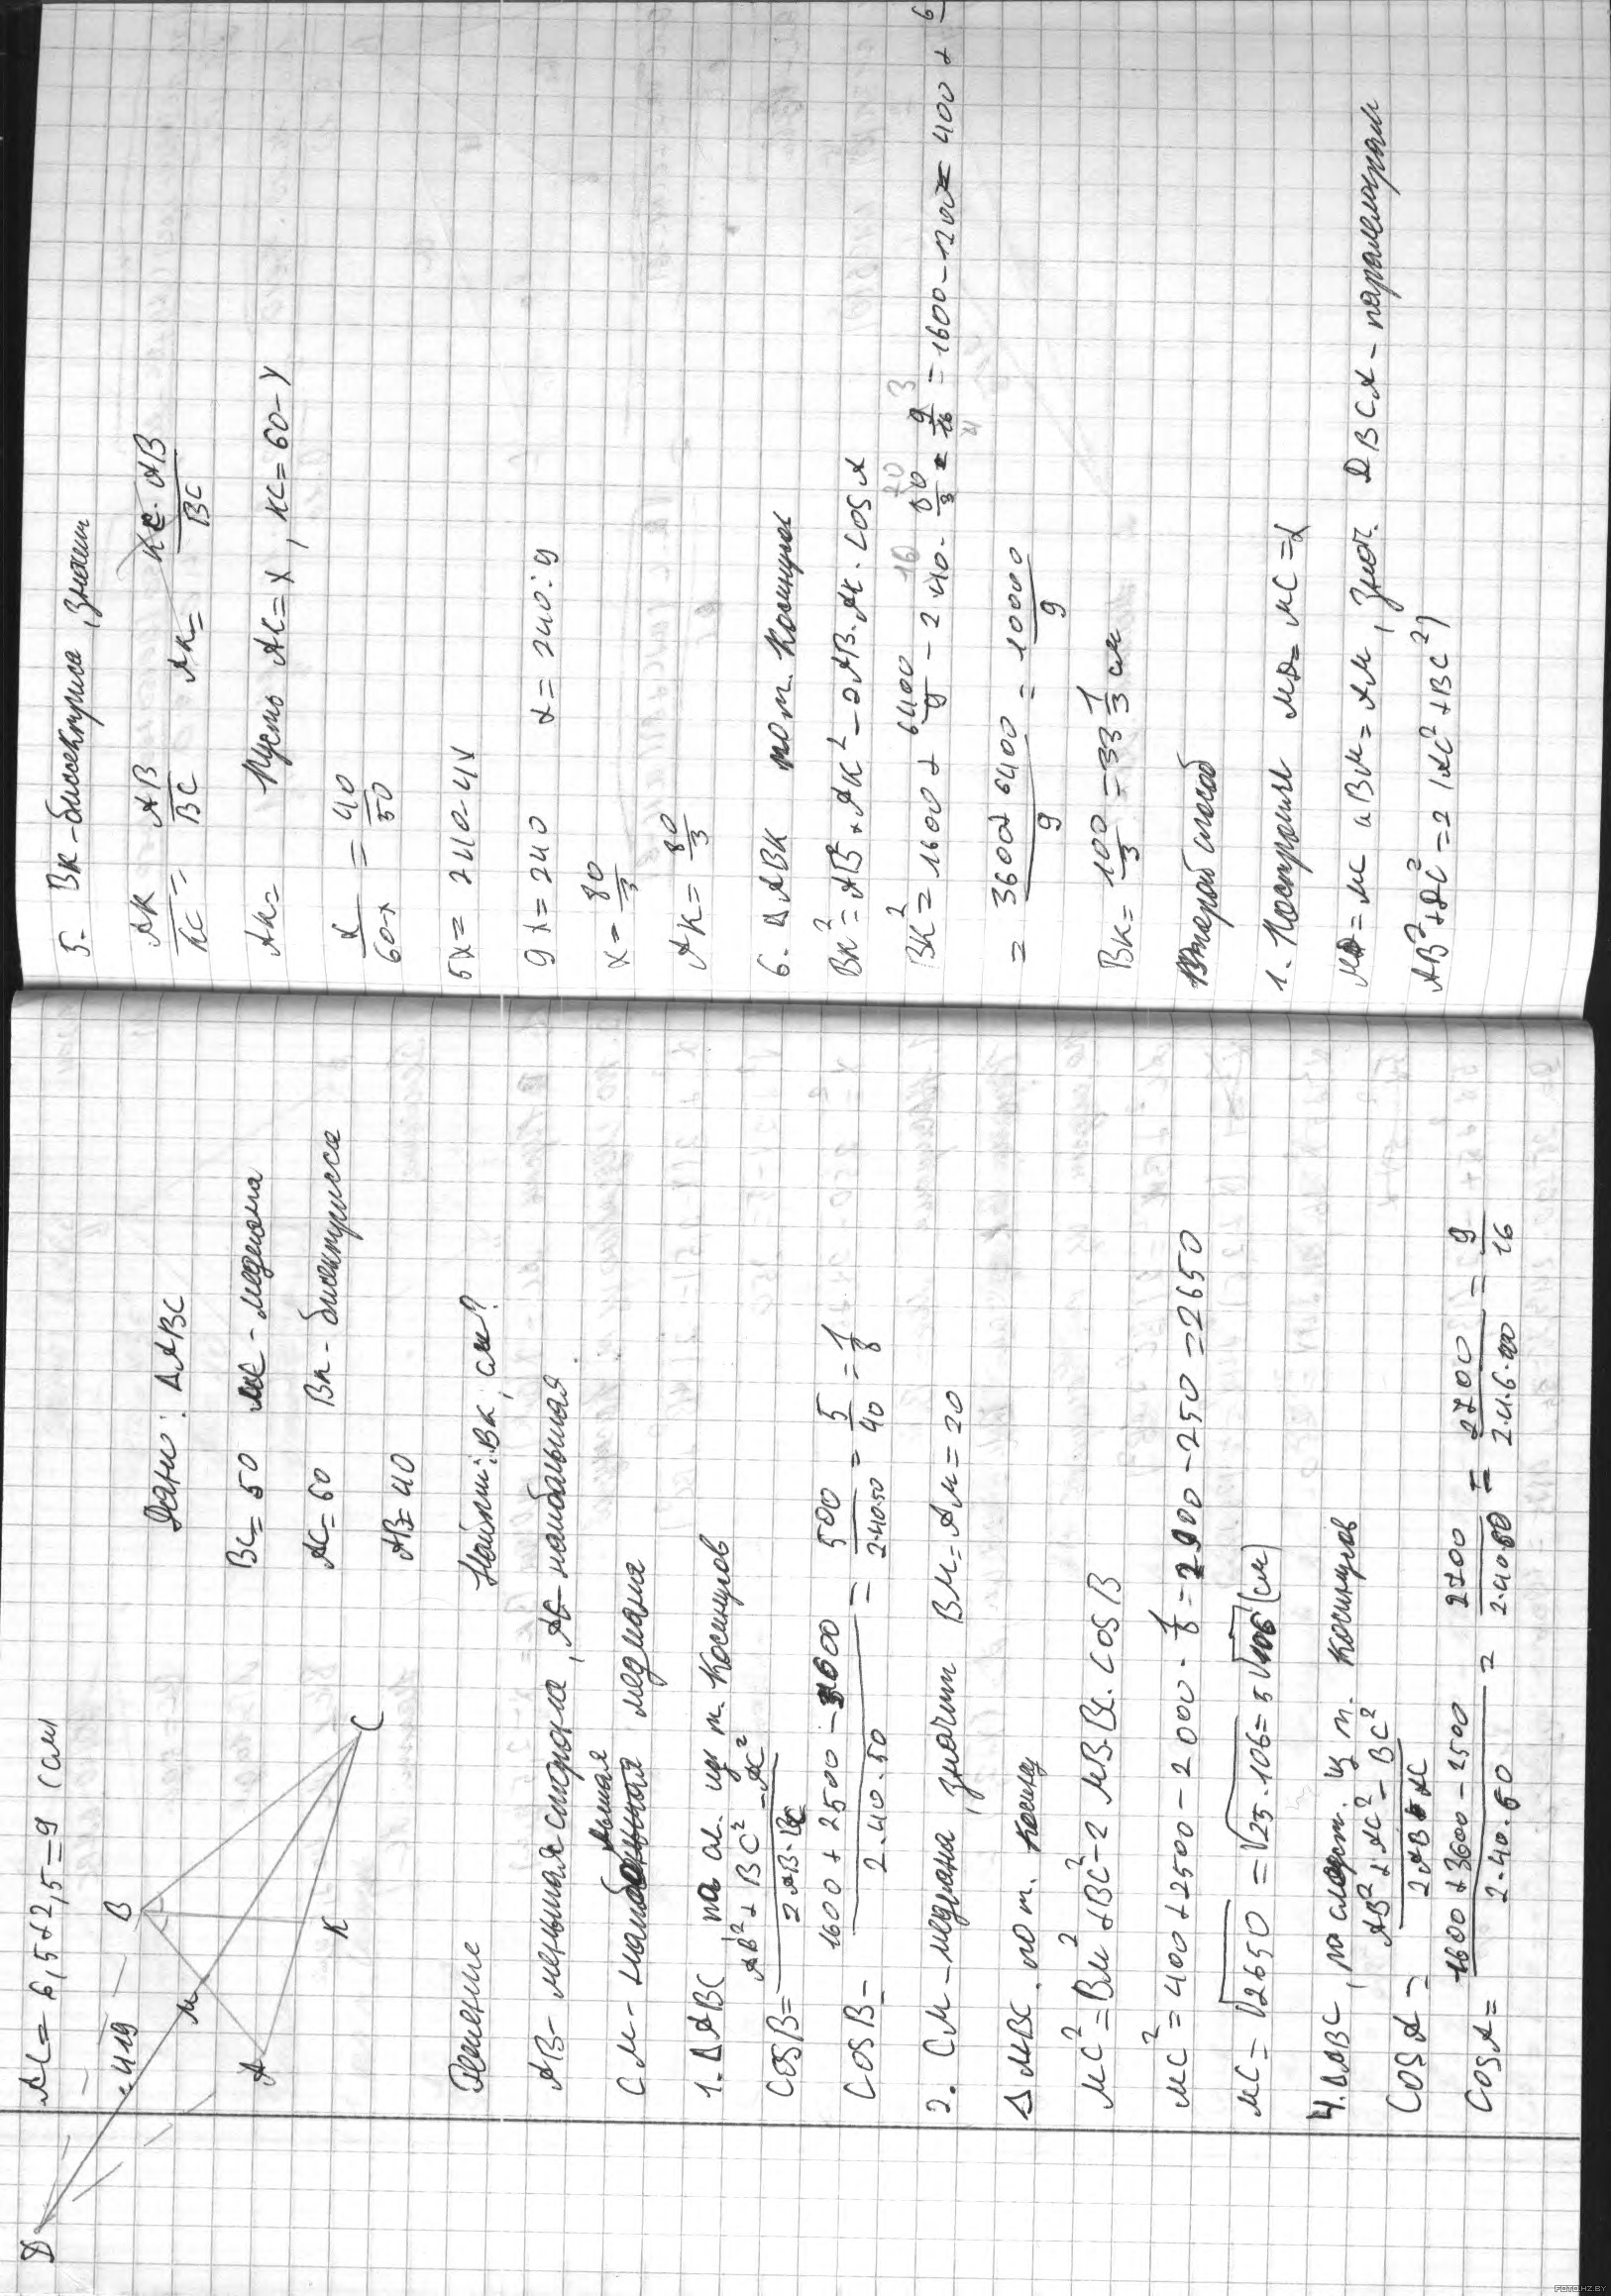 AC = 6,5 + 2,5 = 9 (см)
D
B
M
A
K
C
Дано: ΔABC
BC = 50 MC - медиана
AC = 60 BK - биссектрисса
AB = 40
Найти: BK, см?
Решение
AB - меньшая сторона, AC наибольшая
CM - медиана
1. ΔABC по сл. из т. Косинусов
cos B = (AB² + BC² - AC²) / (2 AB·BC)
cos B = (1600 + 2500 - 3600) / (2·40·50) = 500 / (2·40·50) = 5/40 = 1/8
2. CM - медиана, значит BM = AM = 20
Δ MBC по т. косинус
MC² = BM² + BC² - 2 MB·BC·cos B
MC² = 400 + 2500 - 2000 · 1/8 = 2900 - 250 = 2650
MC = √2650 = √25·106 = 5√106 (см)
4. ΔABC, по следст. из т. косинусов
cos A = (AB² + AC² - BC²) / (2 AB·AC)
cos A = (1600 + 3600 - 2500) / (2·40·60) = 2700 / (2·40·60) = 2700 / (2·4·6·100) = 9/16
5. BK - биссектриса, значит
AK/KC = AB/BC AK = KC·AB/BC
AK = Пусть AK = x, KC = 60-x
x/(60-x) = 40/50
5x = 240-4x
9x = 240 x = 240:9
x = 80/3
AK = 80/3
6. Δ ABK по т. Косинусов
BK² = AB² + AK² - 2AB·AK·cos A
BK² = 1600 + 6400/9 - 2·40· 80/3 · 9/16 = 1600 - 1200 = 400 +
= (3600 + 6400)/9 = 10000/9
BK = 100/3 = 33 1/3 см
Второй способ
1. Построим MD = MC = x
MD = MC а BM = AM, знач. DBCA - параллелограм
AB² + DC² = 2(AC² + BC²)
FOTO.HZ.BY